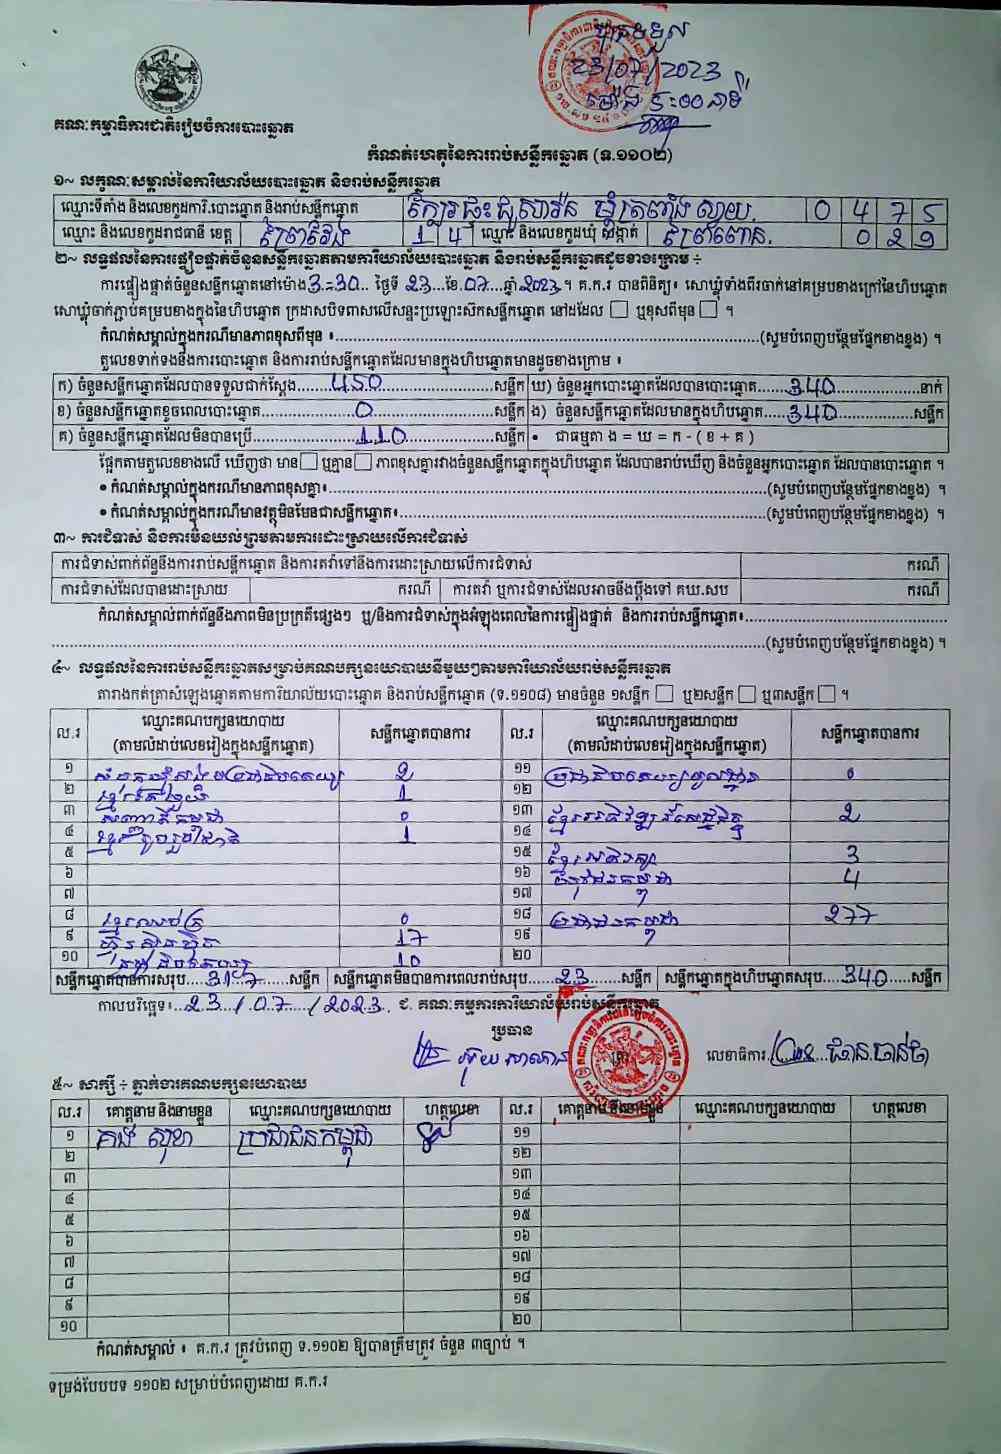 បានទទួល
23/07/2023
ម៉ោង ៥:០០ នាទី
គណៈកម្មាធិការជាតិរៀបចំការបោះឆ្នោត
កំណត់ហេតុនៃការរាប់សន្លឹកឆ្នោត (ទ.១១០២)
១~ លក្ខណៈសម្គាល់នៃការិយាល័យបោះឆ្នោត និងរាប់សន្លឹកឆ្នោត
ឈ្មោះទីតាំង និងលេខកូដការិ.បោះឆ្នោត និងរាប់សន្លឹកឆ្នោត 0 4 7 5
ឈ្មោះ និងលេខកូដរាជធានី ខេត្ត ព្រៃវែង 1 4 ឈ្មោះ និងលេខកូដឃុំ សង្កាត់ 0 2 9
២~ លទ្ធផលនៃការផ្ទៀងផ្ទាត់ចំនួនសន្លឹកឆ្នោតតាមការិយាល័យបោះឆ្នោត និងរាប់សន្លឹកឆ្នោតដូចខាងក្រោម ÷
ការផ្ទៀងផ្ទាត់ចំនួនសន្លឹកឆ្នោតនៅម៉ោង 3=30 ថ្ងៃទី 23 ខែ 07 ឆ្នាំ 2023 ។ គ.ក.រ បានពិនិត្យ៖ សោឃ្លុំទាំងពីរចាក់នៅគម្របខាងក្រៅនៃហិបឆ្នោត
សោឃ្លុំចាក់ភ្ជាប់គម្របខាងក្នុងនៃហិបឆ្នោត ក្រដាសបិទពាសលើសន្ទះប្រឡោះស៊កសន្លឹកឆ្នោត នៅដដែល ☐ ឬខុសពីមុន ☐ ។
កំណត់សម្គាល់ក្នុងករណីមានភាពខុសពីមុន ៖ (សូមបំពេញបន្ថែមផ្នែកខាងខ្នង) ។
តួលេខទាក់ទងនឹងការបោះឆ្នោត និងការរាប់សន្លឹកឆ្នោតដែលមានក្នុងហិបឆ្នោតមានដូចខាងក្រោម ៖
ក) ចំនួនសន្លឹកឆ្នោតដែលបានទទួលជាក់ស្តែង 450 សន្លឹក ឃ) ចំនួនអ្នកបោះឆ្នោតដែលបានបោះឆ្នោត 340 នាក់
ខ) ចំនួនសន្លឹកឆ្នោតខូចពេលបោះឆ្នោត 0 សន្លឹក ង) ចំនួនសន្លឹកឆ្នោតដែលមានក្នុងហិបឆ្នោត 340 សន្លឹក
គ) ចំនួនសន្លឹកឆ្នោតដែលមិនបានប្រើ 110 សន្លឹក • ជាធម្មតា ង = ឃ = ក - ( ខ + គ )
ផ្អែកតាមតួលេខខាងលើ ឃើញថា មាន ☐ ឬគ្មាន ☐ ភាពខុសគ្នារវាងចំនួនសន្លឹកឆ្នោតក្នុងហិបឆ្នោត ដែលបានរាប់ឃើញ និងចំនួនអ្នកបោះឆ្នោត ដែលបានបោះឆ្នោត ។
• កំណត់សម្គាល់ក្នុងករណីមានភាពខុសគ្នា៖ (សូមបំពេញបន្ថែមផ្នែកខាងខ្នង) ។
• កំណត់សម្គាល់ក្នុងករណីមានវត្ថុមិនមែនជាសន្លឹកឆ្នោត៖ (សូមបំពេញបន្ថែមផ្នែកខាងខ្នង) ។
៣~ ការជំទាស់ និងការមិនយល់ព្រមតាមការដោះស្រាយលើការជំទាស់
ការជំទាស់ពាក់ព័ន្ធនឹងការរាប់សន្លឹកឆ្នោត និងការតវ៉ាទៅនឹងការដោះស្រាយលើការជំទាស់ ករណី
ការជំទាស់ដែលបានដោះស្រាយ ករណី ការតវ៉ា ឬការជំទាស់ដែលអាចនឹងប្តឹងទៅ គឃ.សប ករណី
កំណត់សម្គាល់ពាក់ព័ន្ធនឹងភាពមិនប្រក្រតីផ្សេងៗ ឬ/និងការជំទាស់ក្នុងអំឡុងពេលនៃការផ្ទៀងផ្ទាត់ និងការរាប់សន្លឹកឆ្នោត៖
(សូមបំពេញបន្ថែមផ្នែកខាងខ្នង) ។
៤~ លទ្ធផលនៃការរាប់សន្លឹកឆ្នោតសម្រាប់គណបក្សនយោបាយនីមួយៗតាមការិយាល័យរាប់សន្លឹកឆ្នោត
តារាងកត់ត្រាសំឡេងឆ្នោតតាមការិយាល័យបោះឆ្នោត និងរាប់សន្លឹកឆ្នោត (ទ.១១០៨) មានចំនួន ១សន្លឹក ☐ ឬ២សន្លឹក ☐ ឬ៣សន្លឹក ☐ ។
ល.រ ឈ្មោះគណបក្សនយោបាយ (តាមលំដាប់លេខរៀងក្នុងសន្លឹកឆ្នោត) សន្លឹកឆ្នោតបានការ ល.រ ឈ្មោះគណបក្សនយោបាយ (តាមលំដាប់លេខរៀងក្នុងសន្លឹកឆ្នោត) សន្លឹកឆ្នោតបានការ
១ 2 ១១ ប្រជាធិបតេយ្យមូលដ្ឋាន 0
២ 1 ១២
៣ 0 ១៣ ខ្មែរអភិវឌ្ឍន៍សេដ្ឋកិច្ច 2
៤ ខ្មែររួបរួមជាតិ 1 ១៤
៥ ១៥ 3
៦ ១៦ 4
៧ ១៧
៨ 0 ១៨ ប្រជាជនកម្ពុជា 277
៩ ហ្វ៊ុនស៊ិនប៉ិច 17 ១៩
១០ 10 ២០
សន្លឹកឆ្នោតបានការសរុប 317 សន្លឹក សន្លឹកឆ្នោតមិនបានការពេលរាប់សរុប 23 សន្លឹក សន្លឹកឆ្នោតក្នុងហិបឆ្នោតសរុប 340 សន្លឹក
កាលបរិច្ឆេទ៖ 23/07/2023 ជ. គណៈកម្មការការិយាល័យរាប់សន្លឹកឆ្នោត
ប្រធាន
លេខាធិការ
៥~ សាក្សី ÷ ភ្នាក់ងារគណបក្សនយោបាយ
ល.រ គោត្តនាម និងនាមខ្លួន ឈ្មោះគណបក្សនយោបាយ ហត្ថលេខា ល.រ គោត្តនាម និងនាមខ្លួន ឈ្មោះគណបក្សនយោបាយ ហត្ថលេខា
១ គង់ សុខា ប្រជាជនកម្ពុជា ១១
២ ១២
៣ ១៣
៤ ១៤
៥ ១៥
៦ ១៦
៧ ១៧
៨ ១៨
៩ ១៩
១០ ២០
កំណត់សម្គាល់ ៖ គ.ក.រ ត្រូវបំពេញ ទ.១១០២ ឱ្យបានត្រឹមត្រូវ ចំនួន ៣ច្បាប់ ។
ទម្រង់បែបបទ ១១០២ សម្រាប់បំពេញដោយ គ.ក.រ